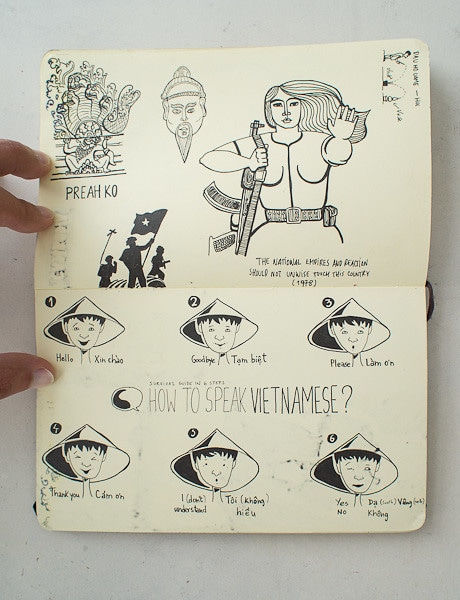 PREAH KO
THE NATIONAL EMPIRES AND REACTION
SHOULD NOT UNWISE TOUCH THIS COUNTRY
(1978)
1
Hello Xin chào
2
Goodbye Tạm biệt
3
Please Làm ơn
SURVIVAL GUIDE IN 6 STEPS
HOW TO SPEAK VIETNAMESE?
4
Thank you Cảm ơn
5
I (don't) Tôi (không)
understand hiểu
6
Yes Dạ (south) Vâng
No Không